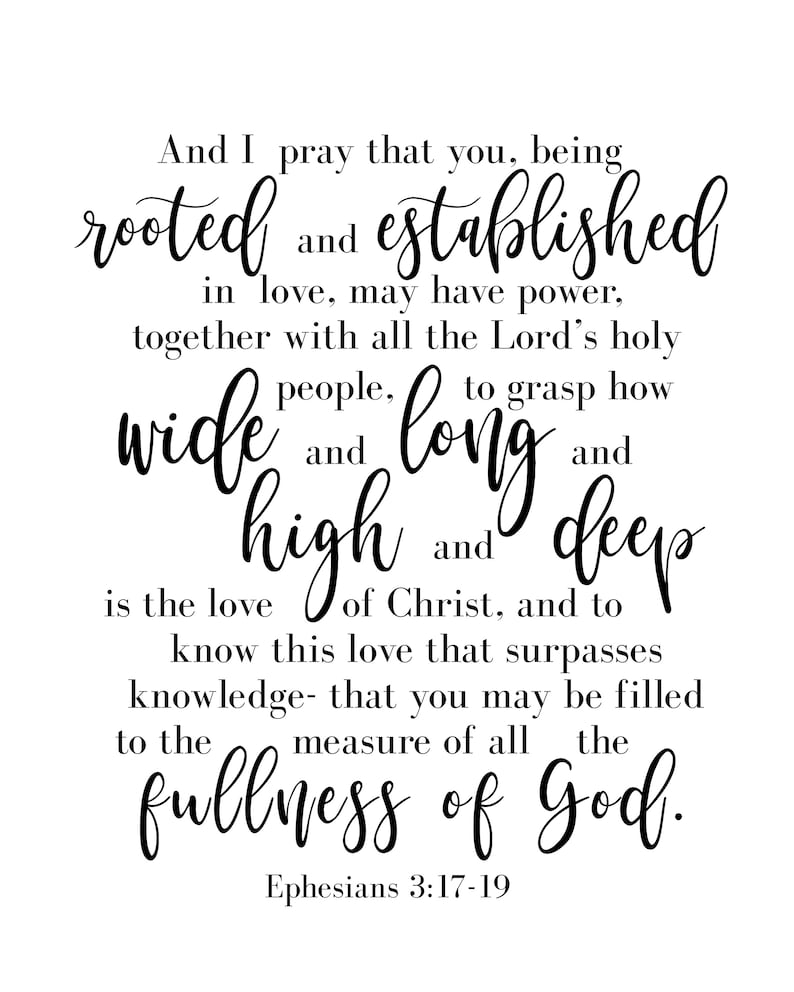 And I pray that you, being
rooted and established
in love, may have power,
together with all the Lord's holy
people, to grasp how
wide and long and
high and deep
is the love of Christ, and to
know this love that surpasses
knowledge- that you may be filled
to the measure of all the
fullness of God.
Ephesians 3:17-19